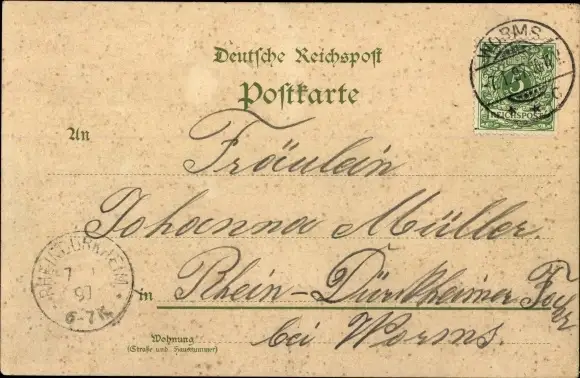 Deutsche Reichspost
Postkarte
WORMS
5
REICHSPOST
C
An
Fräulein
Johanna Müller
RHEINDÜRKHEIM
7 1
97
6-7N
in Rhein-Dürkheimer
bei Worms.
Wohnung
(Straße und Hausnummer)